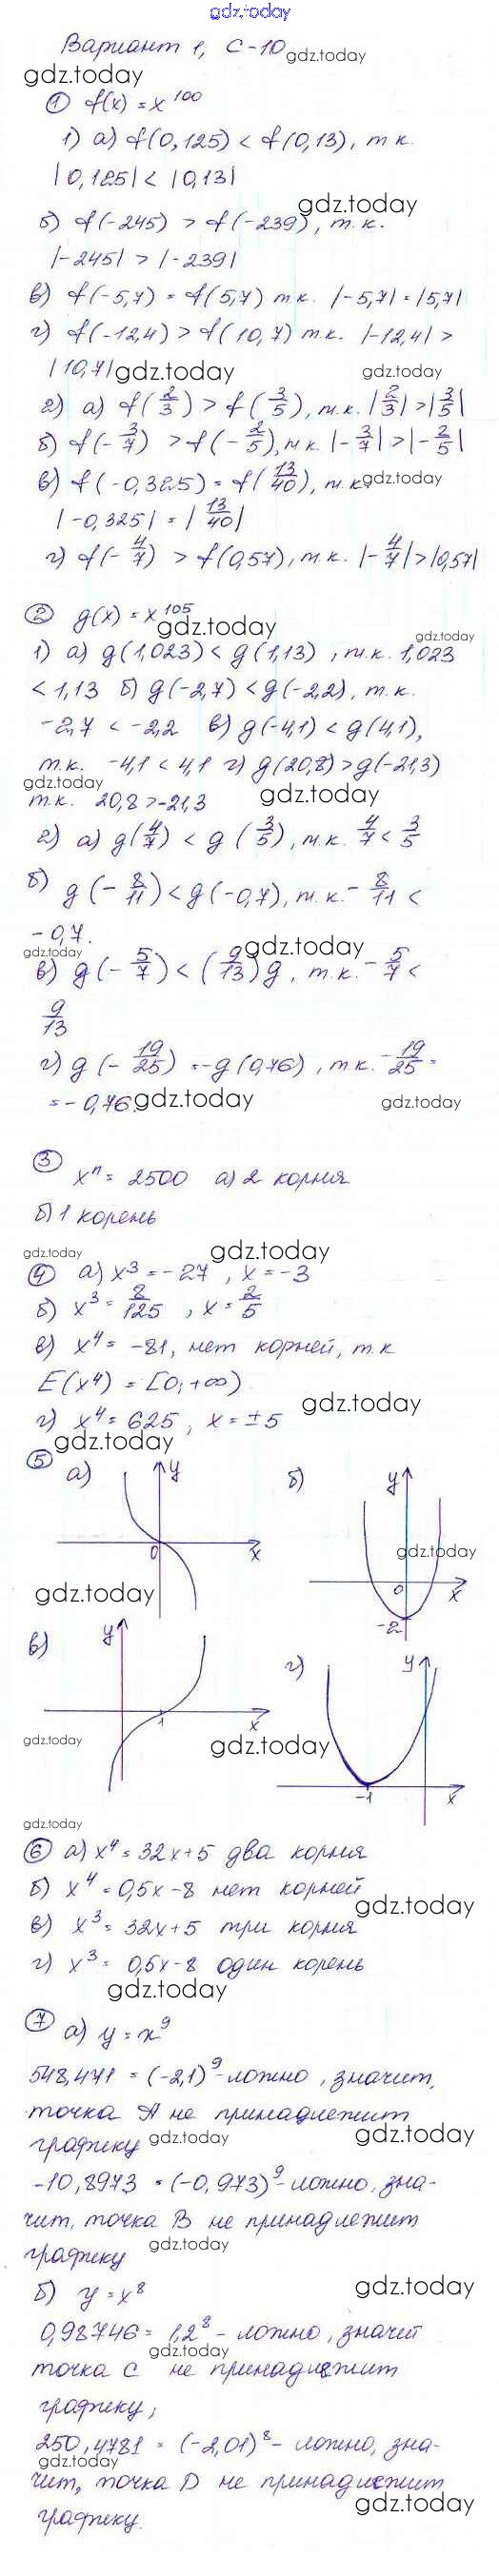 gdz.today
Вариант 1, С-10
gdz.today
gdz.today
① f(x) = x^100
1) а) f(0,125) < f(0,13), т.к.
|0,125| < |0,13|
gdz.today
б) f(-245) > f(-239), т.к.
|-245| > |-239|
в) f(-5,7) = f(5,7) т.к. |-5,7| = |5,7|
г) f(-12,4) > f(10,7) т.к. |-12,4| >
|10,7| gdz.today
2) а) f(2/3) > f(3/5), т.к. |2/3| > |3/5|
б) f(-3/7) > f(-2/5), т.к. |-3/7| > |-2/5|
в) f(-0,325) = f(13/40), т.к. gdz.today
|-0,325| = |13/40|
г) f(-4/7) > f(0,57), т.к. |-4/7| > |0,57|
② g(x) = x^105
gdz.today
gdz.today
1) а) g(1,023) < g(1,13), т.к. 1,023
< 1,13 б) g(-2,7) < g(-2,2), т.к.
-2,7 < -2,2 в) g(-4,1) < g(4,1),
т.к. -4,1 < 4,1 г) g(20,8) > g(-21,3)
gdz.today
gdz.today
т.к. 20,8 > -21,3
2) а) g(4/7) < g(3/5), т.к. 4/7 < 3/5
б) g(-8/11) < g(-0,7), т.к. -8/11 <
-0,7.
gdz.today
gdz.today
в) g(-5/7) < (9/13)g, т.к. -5/7 <
9/13
г) g(-19/25) = -g(0,76), т.к. -19/25 =
= -0,76. gdz.today
gdz.today
③
x^n = 2500 а) 2 корня
б) 1 корень
gdz.today
gdz.today
④ а) x^3 = -27, x = -3
б) x^3 = 8/125, x = 2/5
в) x^4 = -81, нет корней, т.к
E(x^4) = [0; +∞)
gdz.today
г) x^4 = 625, x = ±5
gdz.today
⑤ а) y
0 x
б) y
gdz.today
0 x
-2
gdz.today
в) y
1 x
gdz.today
г) y
gdz.today
-1 x
gdz.today
⑥ а) x^4 = 32x+5 два корня
б) x^4 = 0,5x-8 нет корней
gdz.today
в) x^3 = 32x+5 три корня
г) x^3 = 0,5x-8 один корень
gdz.today
⑦ а) y = x^9
548,471 = (-2,1)^9 - ложно, значит,
точка А не принадлежит
графику gdz.today
gdz.today
-10,8973 = (-0,973)^9 - ложно, зна-
чит, точка В не принадлежит
gdz.today
графику
б) y = x^8
gdz.today
0,98746 = 1,2^8 - ложно, значит
gdz.today
точка С не принадлежит
графику;
250,4781 = (-2,01)^8 - ложно, зна-
gdz.today
чит, точка D не принадлежит
gdz.today
графику.